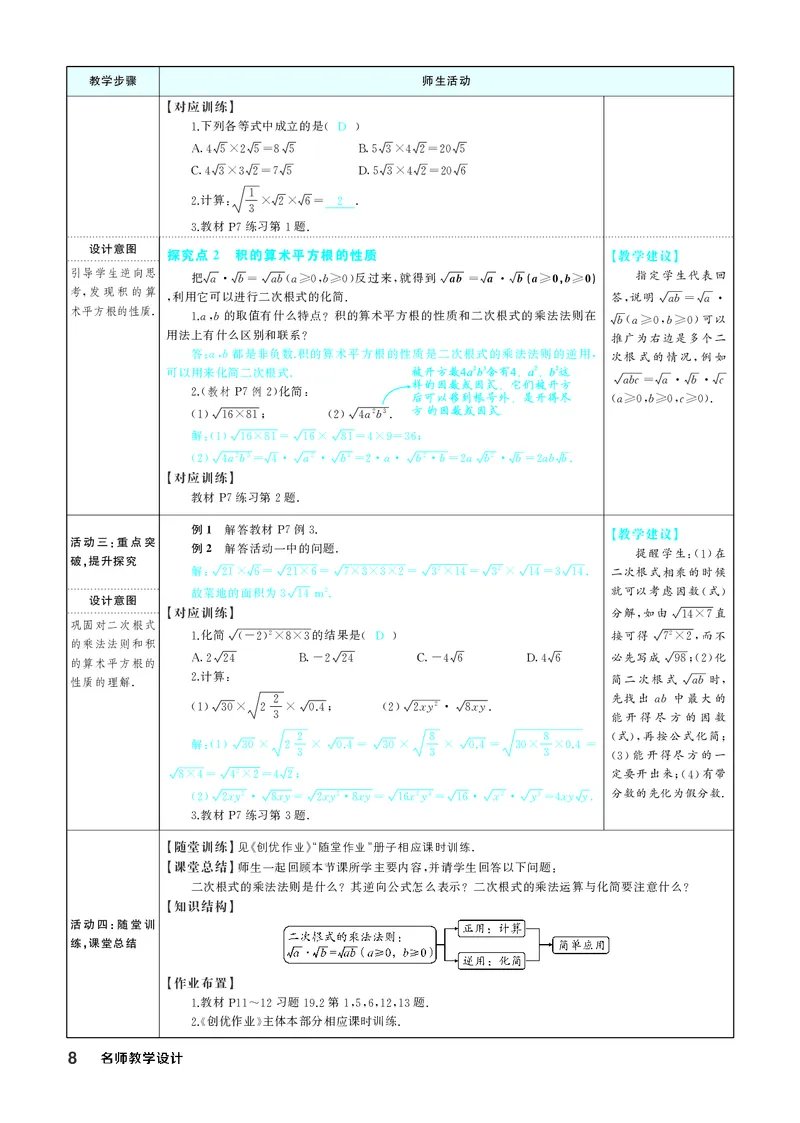 教学步骤 师生活动
【对应训练】
1.下列各等式中成立的是( D )
A.4√5×2√5=8√5 B.5√3×4√2=20√5
C.4√3×3√2=7√5 D.5√3×4√2=20√6
2.计算:√(1/3)×√2×√6= 2 .
3.教材 P7 练习第 1 题.
设计意图
引导学生逆向思
考,发现积的算
术平方根的性质.
探究点 2 积的算术平方根的性质
把√a·√b=√ab(a≥0,b≥0)反过来,就得到√ab=√a·√b(a≥0,b≥0)
,利用它可以进行二次根式的化简.
1.a,b 的取值有什么特点?积的算术平方根的性质和二次根式的乘法法则在
用法上有什么区别和联系?
答:a,b 都是非负数.积的算术平方根的性质是二次根式的乘法法则的逆用,
可以用来化简二次根式.
2.(教材 P7 例 2)化简:
(1)√(16×81); (2)√(4a²b³).
被开方数4a²b³含有4,a²,b²这
样的因数或因式,它们被开方
后可以移到根号外,是开得尽
方的因数或因式
解:(1)√(16×81)=√16×√81=4×9=36;
(2)√(4a²b³)=√4·√a²·√b³=2·a·√(b²·b)=2a√b²·√b=2ab√b.
【对应训练】
教材 P7 练习第 2 题.
【教学建议】
指定学生代表回
答,说明√ab=√a·
√b(a≥0,b≥0)可以
推广为右边是多个二
次根式的情况,例如
√abc=√a·√b·√c
(a≥0,b≥0,c≥0).
活动三:重点突
破,提升探究
设计意图
巩固对二次根式
的乘法法则和积
的算术平方根的
性质的理解.
例 1 解答教材 P7 例 3.
例 2 解答活动一中的问题.
解:√21×√6=√(21×6)=√(7×3×3×2)=√(3²×14)=√3²×√14=3√14.
故菜地的面积为 3√14 m².
【对应训练】
1.化简√((-2)²×8×3)的结果是( D )
A.2√24 B.-2√24 C.-4√6 D.4√6
2.计算:
(1)√30×√(2 2/3)×√0.4; (2)√(2xy²)·√(8xy).
解:(1)√30×√(2 2/3)×√0.4=√30×√(8/3)×√0.4=√(30×8/3×0.4)=
√(8×4)=√(4²×2)=4√2;
(2)√(2xy²)·√(8xy)=√(2xy²·8xy)=√(16x²y³)=√16·√x²·√y³=4xy√y.
3.教材 P7 练习第 3 题.
【教学建议】
提醒学生:(1)在
二次根式相乘的时候
就可以考虑因数(式)
分解,如由√(14×7)直
接可得√(7²×2),而不
必先写成√98;(2)化
简二次根式√ab时,
先找出 ab 中最大的
能开得尽方的因数
(式),再按公式化简;
(3)能开得尽方的一
定要开出来;(4)有带
分数的先化为假分数.
活动四:随堂训
练,课堂总结
【随堂训练】见《创优作业》“随堂作业”册子相应课时训练.
【课堂总结】师生一起回顾本节课所学主要内容,并请学生回答以下问题:
二次根式的乘法法则是什么?其逆向公式怎么表示?二次根式的乘法运算与化简要注意什么?
【知识结构】
二次根式的乘法法则:
√a·√b=√ab(a≥0, b≥0)
正用:计算
逆用:化简
简单应用
【作业布置】
1.教材 P11~12 习题 19.2 第 1,5,6,12,13 题.
2.《创优作业》主体本部分相应课时训练.
8 名师教学设计